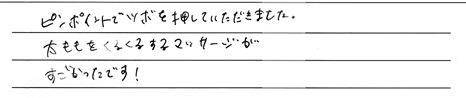 ピンポイントでツボを押していただきました。
太ももをくるくるするマッサージが
すごかったです!